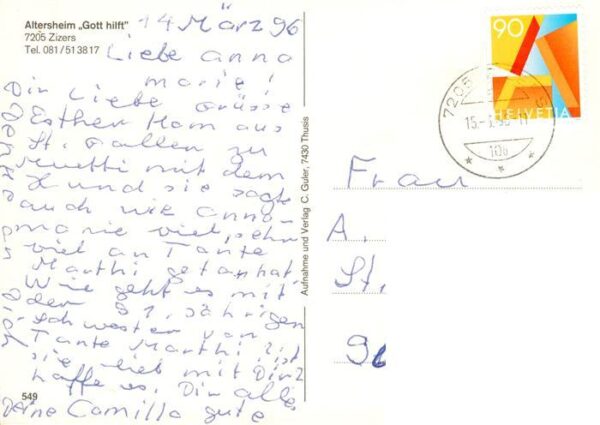 Altersheim „Gott hilft"
7205 Zizers
Tel. 081/51 38 17
14 März 96
Liebe anna
marie!
Dir Liebe Grüsse
Esther Ham aus
St. Gallen zu
Muetti mit dem
und sie sagte
auch wie anna-
marie viel, sehr
viel an Tante
Marthi getan hat
Wie geht es mit
der 91. jährigen
Schwester von
Tante Marthi? ist
sie lieb mit Dir?
hoffe es. Dir alles
gute
Deine Camilla
549
Aufnahme und Verlag C. Guler, 7430 Thusis
90
HELVETIA
7205
15.
Frau
A.
St.
9